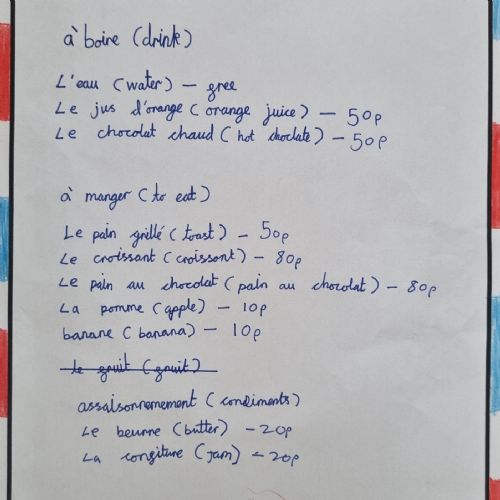 à boire (drink)
L'eau (water) – free
Le jus d'orange (orange juice) – 50p
Le chocolat chaud (hot choclate) – 50p
à manger (to eat)
Le pain grillé (toast) – 50p
Le croissant (croissant) – 80p
Le pain au chocolat (pain au chocolat) – 80p
La pomme (apple) – 10p
banane (banana) – 10p
le fruit (fruit)
assaisonnement (condiments)
Le beurre (butter) – 20p
La confiture (jam) – 20p